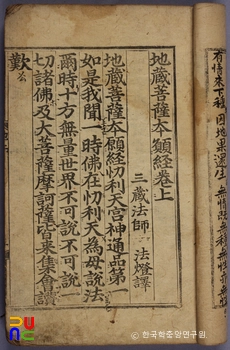 有情來下種 因地果還生 無情旣無種
地藏菩薩本願經卷上
三藏法師 法燈譯
地藏菩薩本願經忉利天宮神通品第一
如是我聞一時佛在忉利天為母說法
爾時十方無量世界不可說不可說一
切諸佛及大菩薩摩訶薩皆來集會讚
歎
ⓒ 한국학중앙연구원